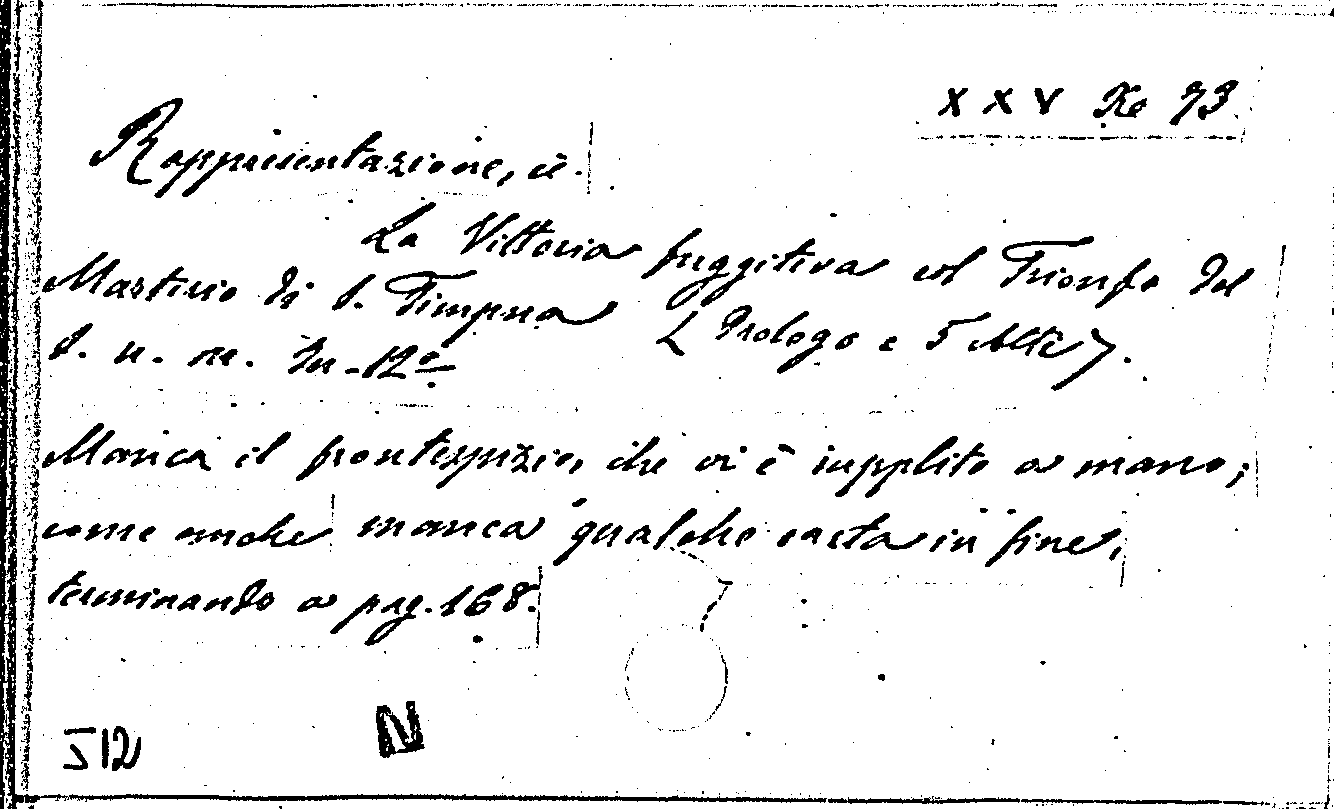 XXV Xe 93
Rappresentazione, cè.
La Vittoria fuggitiva col Trionfo del
Martirio di S. Timpna [Prologo e 5 Atti].
S. u. n. In-12º
Manca il frontespizio, che vi è supplito a mano;
come anche manca qualche carta in fine,
terminando a pag. 168.
N
512